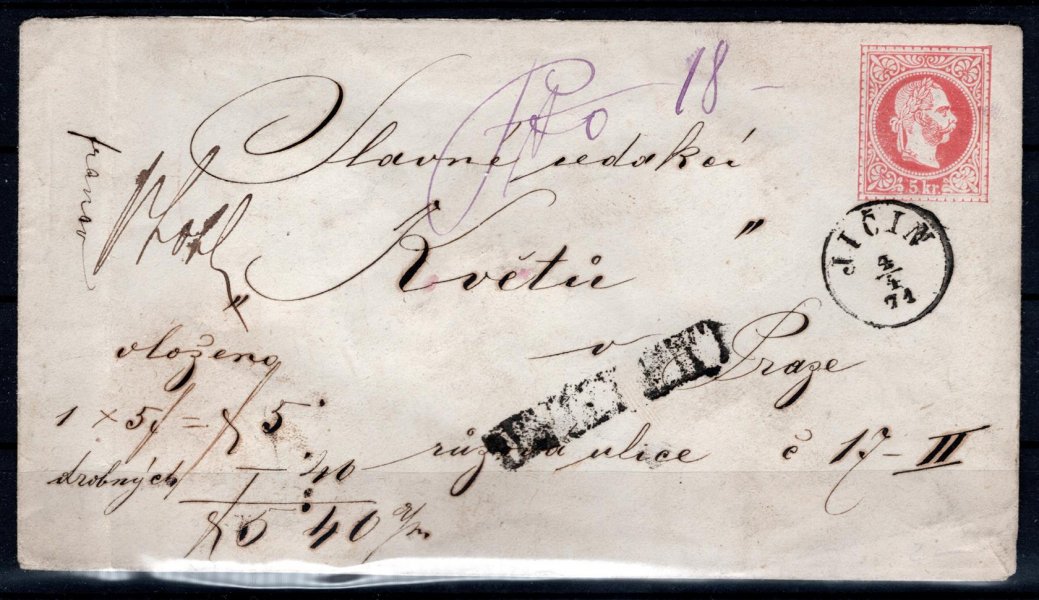 18 -
Slavné redakcí
"Květů"
v Praze
růžová ulice č 17-II
franco
vloženo
1 × 5f = f 5 .
drobných . 40
f 5 . 40
5 kr.
JIČIN
4/4
71